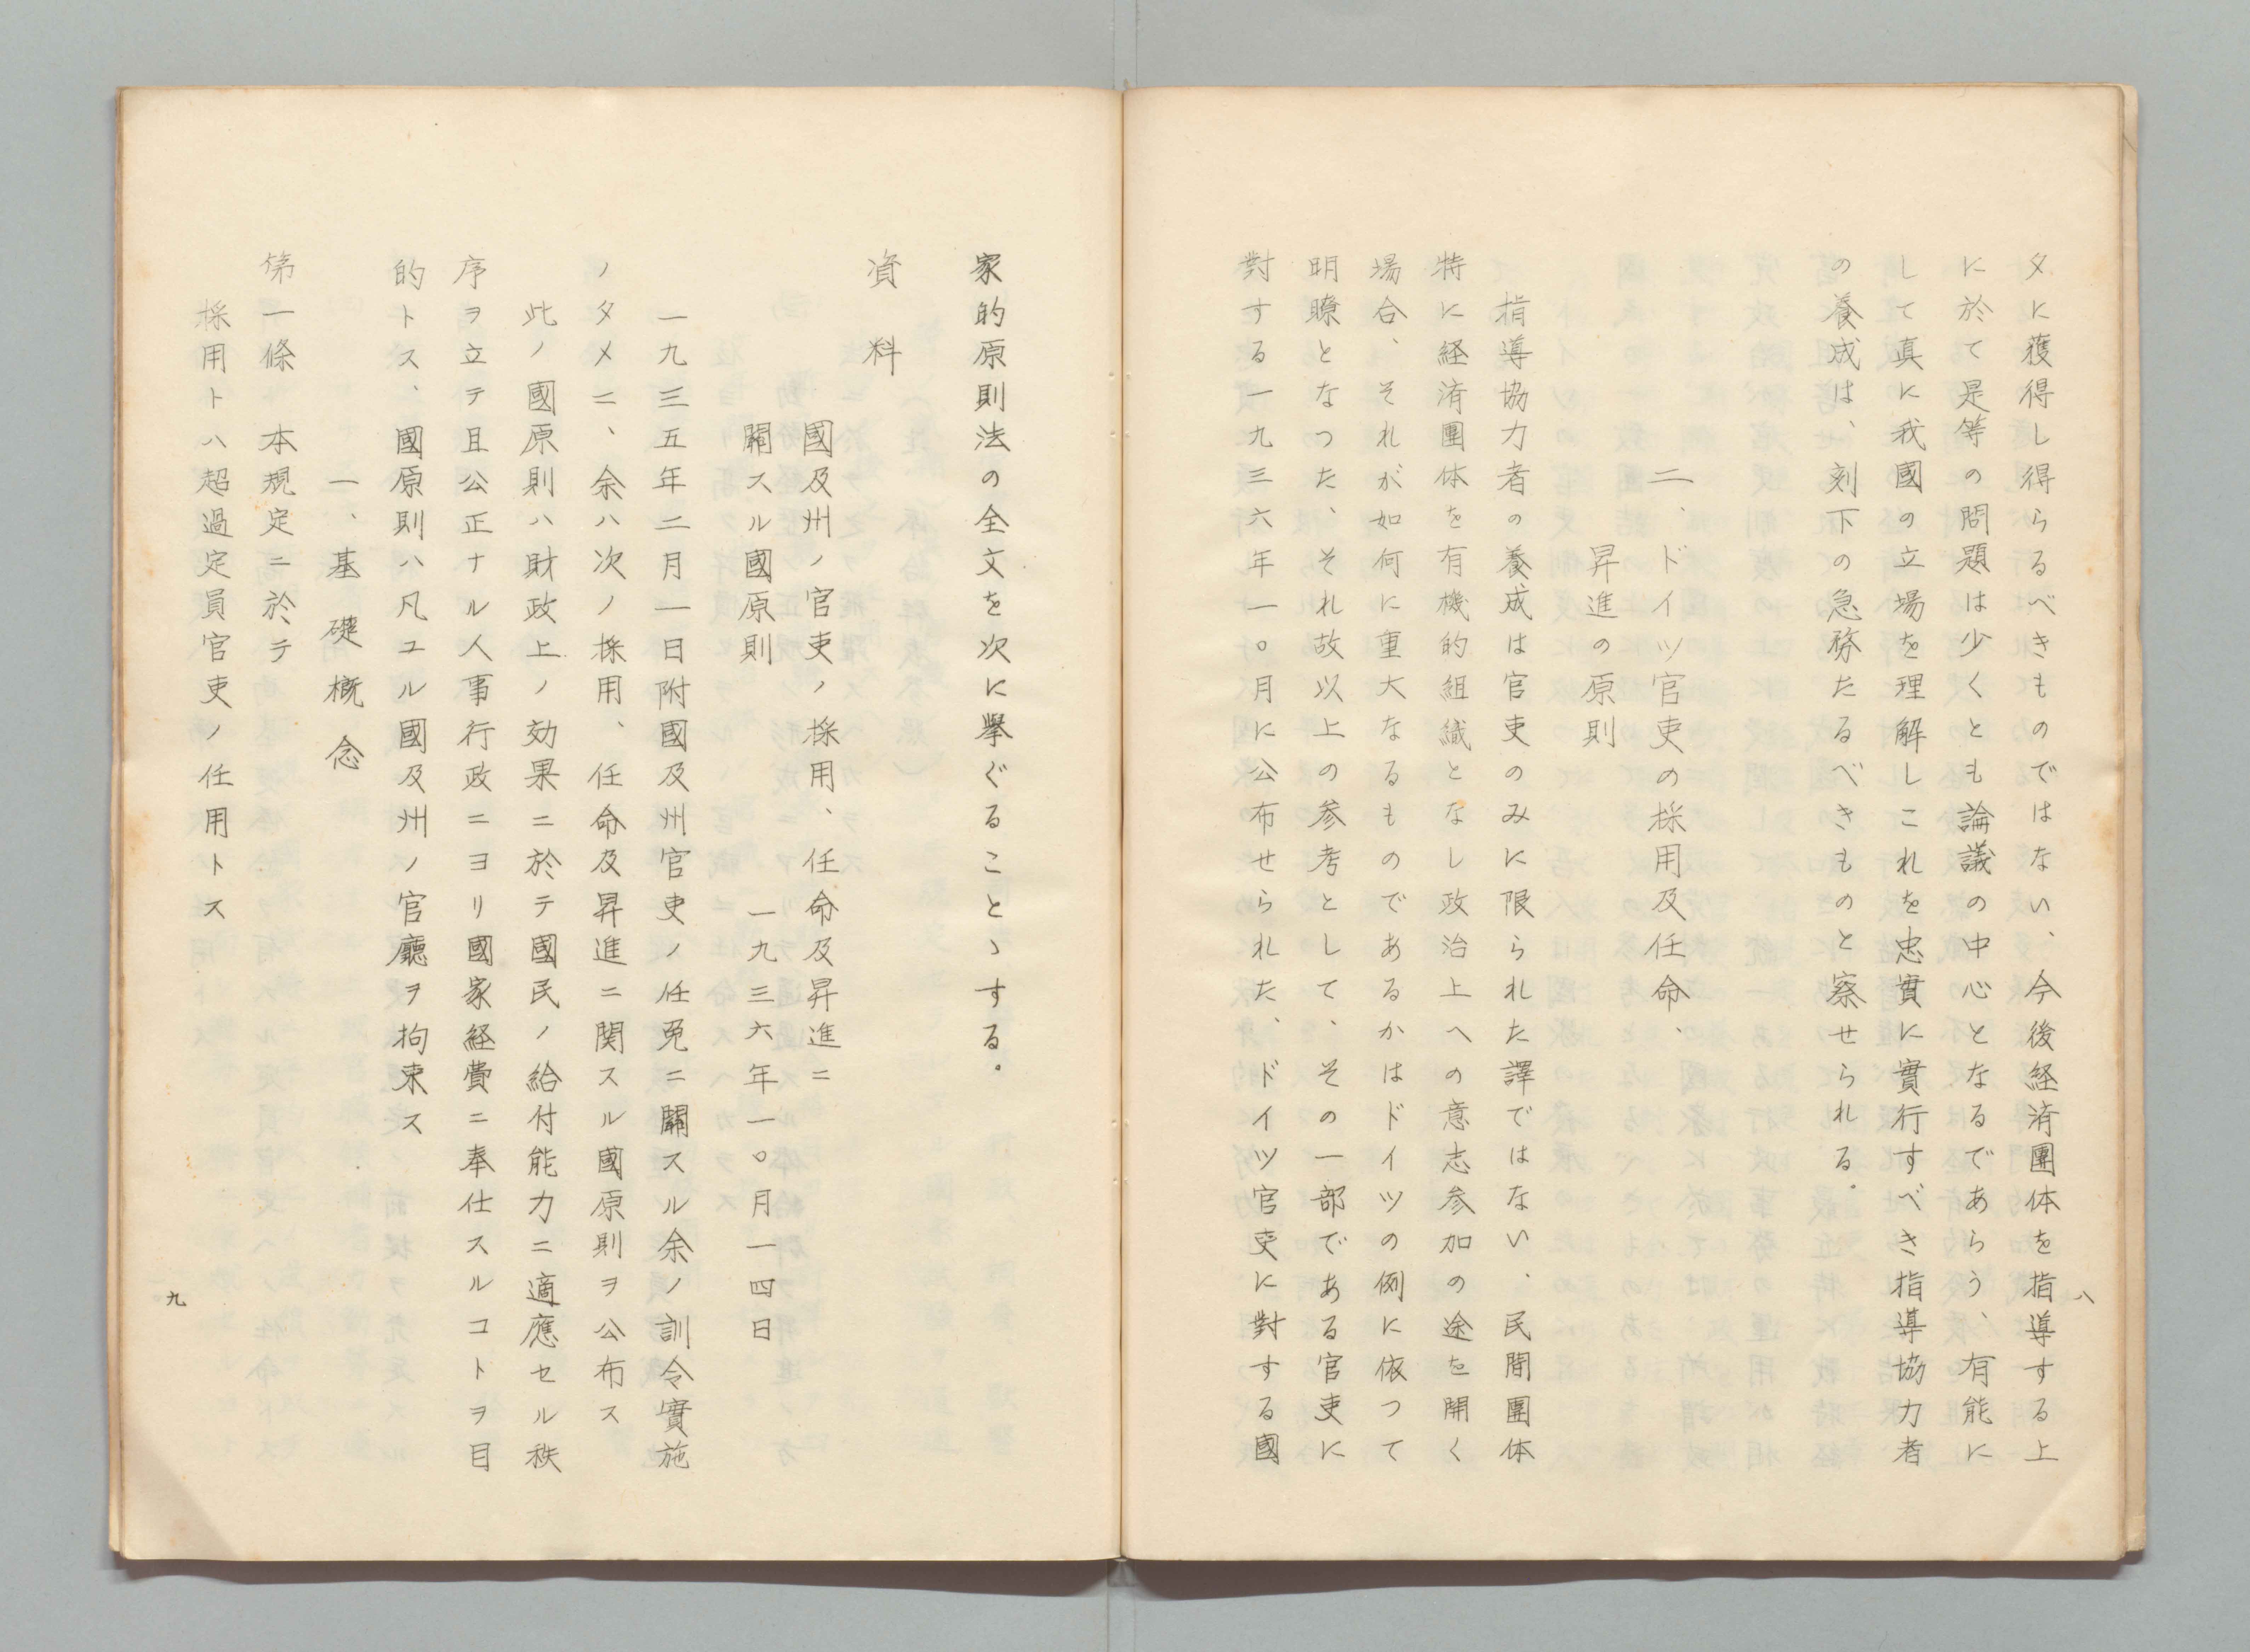 夕に獲得し得らるべきものではない、今後経済團体を指導する上
に於て是等の問題は少くとも論議の中心となるであらう、有能に
して真に我國の立場を理解しこれを忠實に實行すべき指導協力者
の養成は、刻下の急務たるべきものと察せられる。
二、ドイツ官吏の採用及任命、
昇進の原則
指導協力者の養成は官吏のみに限られた譯ではない、民間團体
特に経済團体を有機的組織となし政治上への意志参加の途を開く
場合、それが如何に重大なるものであるかはドイツの例に依つて
明瞭となつた、それ故以上の参考として、その一部である官吏に
對する一九三六年一〇月に公布せられた、ドイツ官吏に對する國
八
家的原則法の全文を次に擧ぐることゝする。
資料
國及州ノ官吏ノ採用、任命及昇進ニ
關スル國原則
一九三六年一〇月一四日
一九三五年二月一日附國及州官吏ノ任免ニ關スル余ノ訓令實施
ノタメニ、余ハ次ノ採用、任命及昇進ニ関スル國原則ヲ公布ス
此ノ國原則ハ財政上ノ効果ニ於テ國民ノ給付能力ニ適應セル秩
序ヲ立テ且公正ナル人事行政ニヨリ國家経費ニ奉仕スルコトヲ目
的トス、國原則ハ凡ユル國及州ノ官廳ヲ拘束ス
一、基礎概念
第一條 本規定ニ於テ
採用トハ超過定員官吏ノ任用トス
九